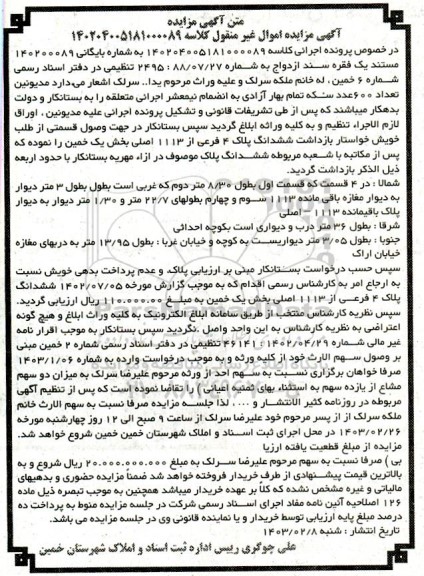 متن آگهی مزایده
آگهی مزایده اموال غیر منقول کلاسه ۱۴۰۲۰۴۰۰۵۱۸۱۰۰۰۰۸۹
در خصوص پرونده اجرائی کلاسه ۱۴۰۲۰۴۰۰۵۱۸۱۰۰۰۰۸۹ به شماره بایگانی ۱۴۰۲۰۰۰۸۹
مستند یک فقره سند ازدواج به شماره ۲۴۹۵ : ۸۸/۰۷/۲۷ تنظیمی در دفتر اسناد رسمی
شماره ۶ خمین ، له خانم ملکه سرلک و علیه وراث مرحوم یدا.. سرلک اشعار می‌دارد مدیونین
تعداد ۶۰۰عدد سکه تمام بهار آزادی به انضمام نیمعشر اجرائی متعلقه را به بستانکار و دولت
بدهکار میباشند که پس از طی تشریفات قانونی و تشکیل پرونده اجرائی علیه مدیونین ، اوراق
لازم الاجراء تنظیم و به کلیه ورثه ابلاغ گردید سپس بستانکار در جهت وصول قسمتی از طلب
خویش خواستار بازداشت ششدانگ پلاک ۴ فرعی از ۱۱۱۳ اصلی بخش یک خمین را نموده که
پس از مکاتبه با شعبه مربوطه ششدانگ پلاک موصوف در ازاء مهریه بستانکار با حدود اربعه
ذیل الذکر بازداشت گردید.
شمالا : در ۴ قسمت که قسمت اول بطول ۸/۳۰ متر دوم که غربی است بطول بطول ۳ متر دیوار
به دیوار مغازه باقی مانده ۱۱۱۳ سوم و چهارم بطولهای ۲۲/۷ متر و ۱/۳۰ متر دیوار به دیوار
پلاک باقیمانده ۱۱۱۳ – اصلی
شرقا : بطول ۳۶ متر درب و دیواری است بکوچه احداثی
جنوبا : بطول ۳/۰۵ متر دیواریست به کوچه و خیابان غربا : بطول ۱۳/۹۵ متر به دربهای مغازه
خیابان اراک
سپس حسب درخواست بستانکار مبنی بر ارزیابی پلاک و عدم پرداخت بدهی خویش نسبت
به ارجاع امر به کارشناس رسمی اقدام که به موجب گزارش مورخه ۱۴۰۲/۰۷/۰۵ ششدانگ
پلاک ۴ فرعی از ۱۱۱۳ اصلی بخش یک خمین به مبلغ ۱۱۰.۰۰۰.۰۰۰.۰۰۰ ریال ارزیابی گردید.
سپس نظریه کارشناس منتخب از طریق سامانه ابلاغ الکترونیک به کلیه وراث ابلاغ و هیچ گونه
اعتراضی به نظریه کارشناس به این واحد واصل .نگردید سپس بستانکار به موجب اقرار نامه
غیر مالی شماره ۱۴۰۲/۰۴/۲۹ ، ۴۶۱۴۱ تنظیمی در دفتر اسناد رسمی شماره ۲ خمین مبنی
بر وصول سهم الارث خود از کلیه ورثه و به موجب درخواست وارده به شماره ۱۴۰۳/۱/۰۶
صرفا خواهان برگزاری نسبت به سهم احد از ورثه مرحوم علیرضا سرلک به میزان دو سهم
مشاع از یازده سهم به استثناء بهای ثمنیه اعیانی ) را تقاضا نموده است که پس از تنظیم آگهی
مربوطه در روزنامه کثیر الانتشار و .... ، لذا جلسه مزایده صرفا نسبت به سهم الارث خانم
ملکه سرلک از از پسر مرحوم خود علیرضا سرلک از ساعت ۹ صبح الی ۱۲ روز چهارشنبه مورخه
۱۴۰۳/۰۲/۲۶ در محل اجرای ثبت اسناد و املاک شهرستان خمین خمین شروع خواهد شد.
مزایده از مبلغ قطعیت یافته ارزیا
بی ) صرفا نسبت به سهم مرحوم علیرضا سرلک به مبلغ ۲۰.۰۰۰.۰۰۰.۰۰۰ ریال شروع و به
بالاترین قیمت پیشنهادی از طرف خریدار فروخته خواهد شد ضمناً مزایده حضوری و بدهیهای
مالیاتی و غیره مشخص نشده که کلاً بر عهده خریدار میباشد همچنین به موجب تبصره ذیل ماده
۱۲۶ اصلاحیه آئین نامه مفاد اجرای اسناد رسمی شرکت در جلسه مزایده منوط به پرداخت ده
درصد مبلغ پایه ارزیابی توسط خریدار و یا نماینده قانونی وی در جلسه مزایده می باشد.
تاریخ انتشار : شنبه ۱۴۰۳/۰۲/۸
علی جوگری رییس اداره ثبت اسناد و املاک شهرستان خمین